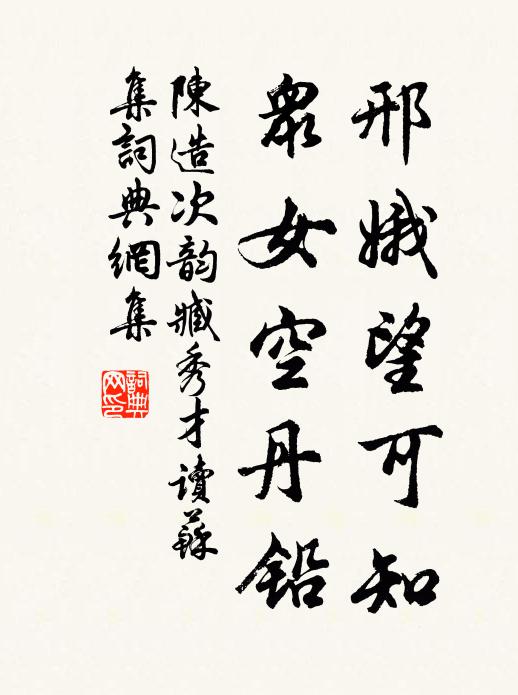 邢娥望可知
衆女空丹鉛
陳造次韵臧秀才讀蘇
集詞典網集
詞典网印